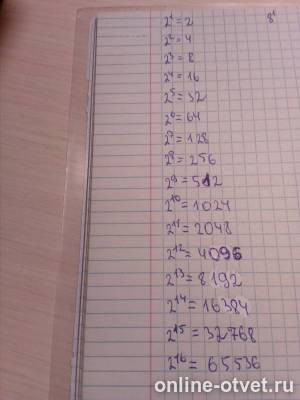 2¹=2 8¹
2²=4
2³=8
2⁴=16
2⁵=32
2⁶=64
2⁷=128
2⁸=256
2⁹=512
2¹⁰=1024
2¹¹=2048
2¹²=4096
2¹³=8192
2¹⁴=16384
2¹⁵=32768
2¹⁶=65536
online-otvet.ru